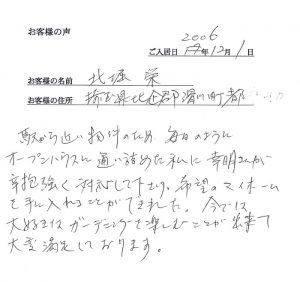 お客様の声
2006
ご入居日 年12月1日
お客様の名前 北堀 栄
お客様の住所 埼玉県比企郡滑川町都
駅から近い物件のため 毎日のように
オープンハウスに通い詰めた私に幸明さんが
辛抱強く対応して下さり、希望のマイホーム
を手に入れることができました。今では
大好きなガーデニングを楽しむことが出来て
大変満足しております。